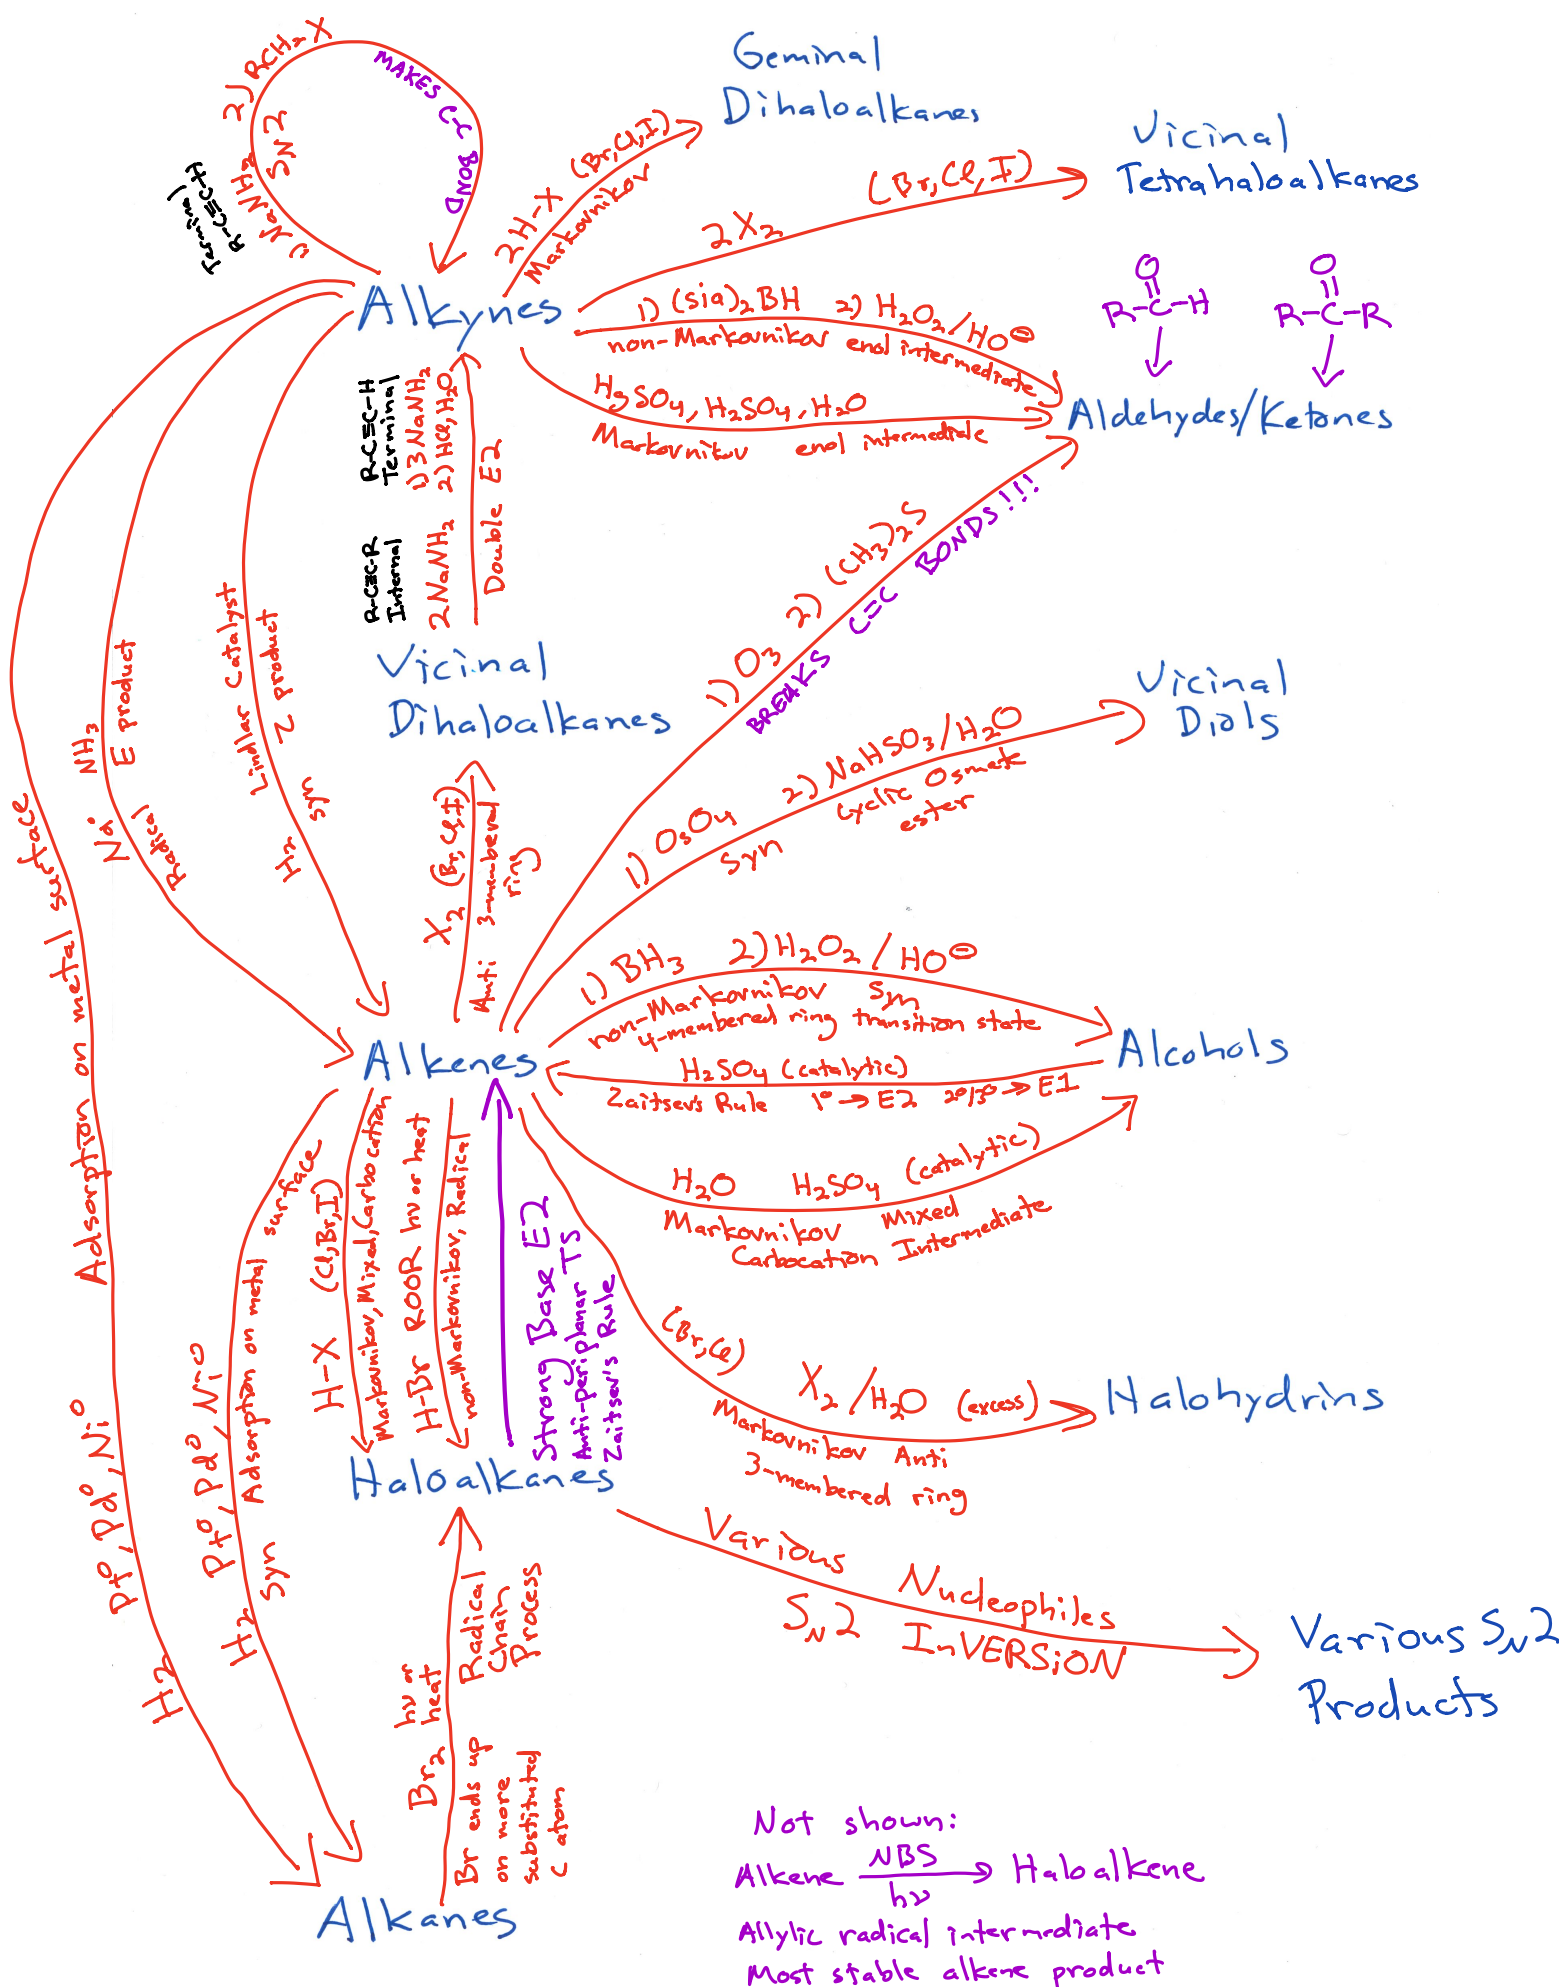 1) NaNH₂ 2) RCH₂X
SN2
MAKES C-C BOND
Terminal
R-C≡C-H
Geminal
Dihaloalkanes
2H-X (Br,Cl,I)
Markovnikov
Vicinal
Tetrahaloalkanes
2X₂ (Br,Cl,I)
Alkynes
1) (sia)₂BH 2) H₂O₂/HO⊖
non-Markovnikov enol intermediate
HgSO₄, H₂SO₄, H₂O
Markovnikov enol intermediate
O
R-C-H
O
R-C-R
Aldehydes/Ketones
R-C≡C-H
Terminal
1) 3NaNH₂
2) HCl, H₂O
R-C≡C-R
Internal
2NaNH₂
Double E2
Vicinal
Dihaloalkanes
1) O₃ 2) (CH₃)₂S
BREAKS C=C BONDS!!!
Vicinal
Diols
1) OsO₄ 2) NaHSO₃/H₂O
Syn
Cyclic Osmate
ester
X₂ (Br,Cl,I)
Anti 3-membered
ring
H₂ Lindlar Catalyst
syn Z product
Na⁰ NH₃
Radical E product
Adsorption on metal surface
H₂ Pt⁰, Pd⁰, Ni⁰
Alkenes
1) BH₃ 2) H₂O₂ / HO⊖
non-Markovnikov syn
4-membered ring transition state
Alcohols
H₂SO₄ (catalytic)
Zaitsev's Rule 1°→E2 2°/3°→E1
H₂O H₂SO₄ (catalytic)
Markovnikov Mixed
Carbocation Intermediate
H₂ Pt⁰, Pd⁰, Ni⁰
Syn Adsorption on metal surface
H-X (Cl,Br,I)
Markovnikov, Mixed, Carbocation
H-Br ROOR hν or heat
non-Markovnikov, Radical
Strong Base E2
Anti-periplanar TS
Zaitsev's Rule
(Br,Cl)
X₂/H₂O (excess)
Markovnikov Anti
3-membered ring
Halohydrins
Haloalkanes
Various Nucleophiles
SN2 InVERSiON
Various SN2
Products
Br₂ hν or
heat
Radical
Chain
Process
Br ends up
on more
substituted
C atom
Alkanes
Not shown:
Alkene NBS → Haloalkene
hν
Allylic radical intermediate
Most stable alkene product